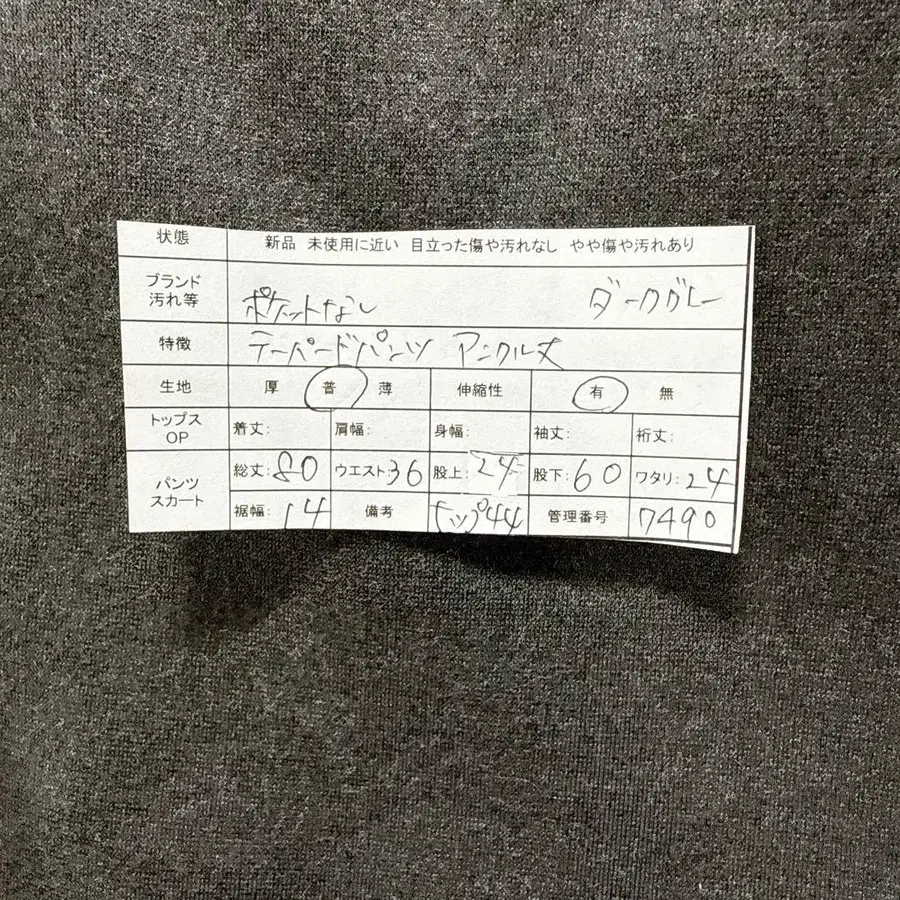 状態 新品 未使用に近い 目立った傷や汚れなし やや傷や汚れあり
ブランド 汚れ等 ポケットなし ダークグレー
特徴 テーパードパンツ アンクル丈
生地 厚 普 薄 伸縮性 有 無
トップス OP 着丈: 肩幅: 身幅: 袖丈: 裄丈:
パンツ スカート 総丈: 80 ウエスト: 36 股上: 24 股下: 60 ワタリ: 24
裾幅: 14 備考 ヒップ44 管理番号 7490